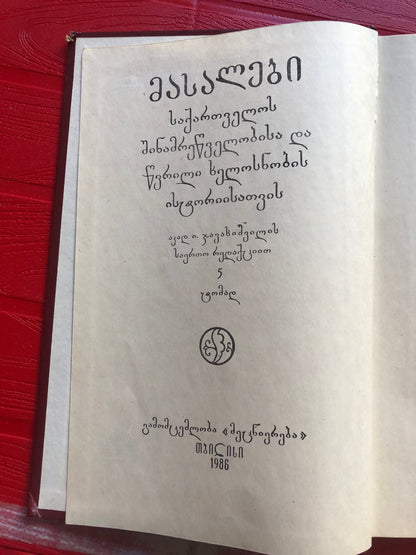 მასალები
საქართველოს
შინამრეწველობისა და
წვრილი ხელოსნობის
ისტორიისათვის
აკად. ი. ჯავახიშვილის
საერთო რედაქციით
5
ტომად
გამომცემლობა «მეცნიერება»
თბილისი
1986